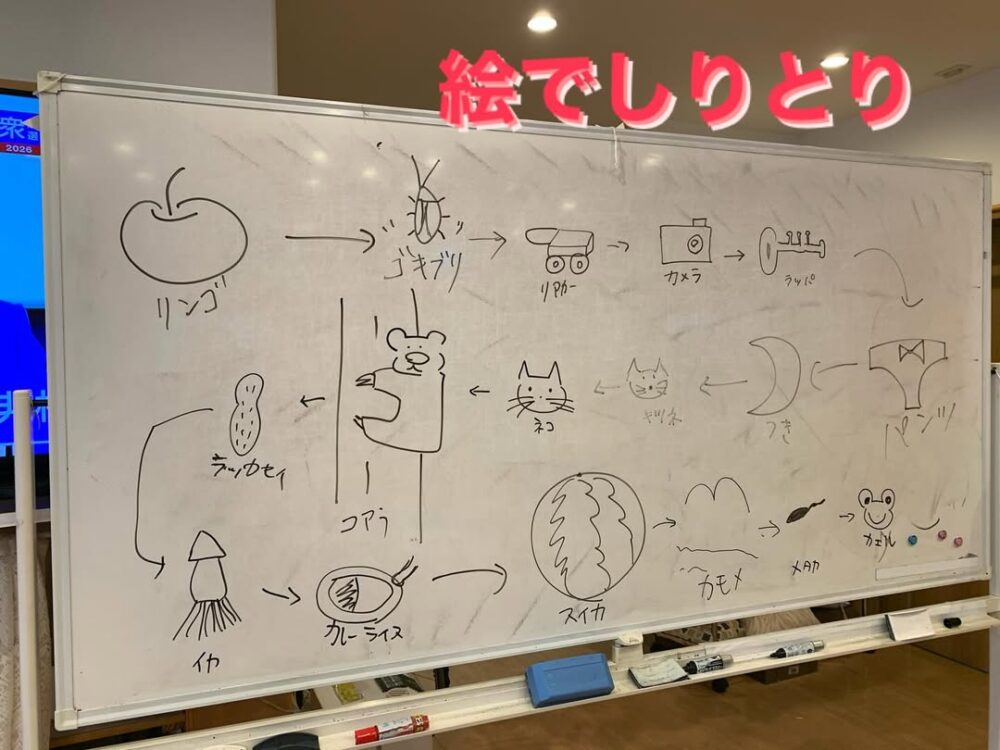 絵でしりとり
衆選
2026
リンゴ
ゴキブリ
リアカー
カメラ
ラッパ
パンツ
つき
キツネ
ネコ
コアラ
ラッカセイ
イカ
カレーライス
スイカ
カモメ
メダカ
カエル